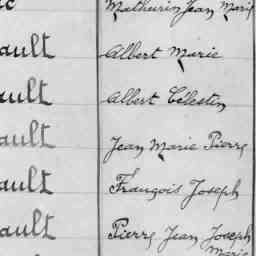 Mathurin Jean Marie
ault Albert Marie
ault Albert Célestin
ault Jean Marie Pierre
ault François Joseph
ault Pierre Jean Joseph
Marie